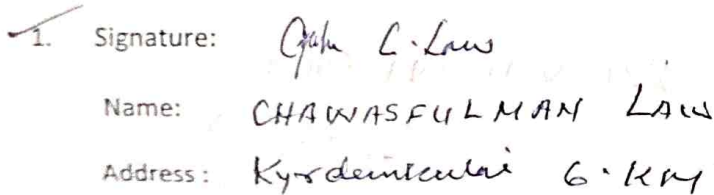 1. Signature: C. Law
Name: CHAWASFULMAN LAW
Address: Kyrdemkulai 6. KM